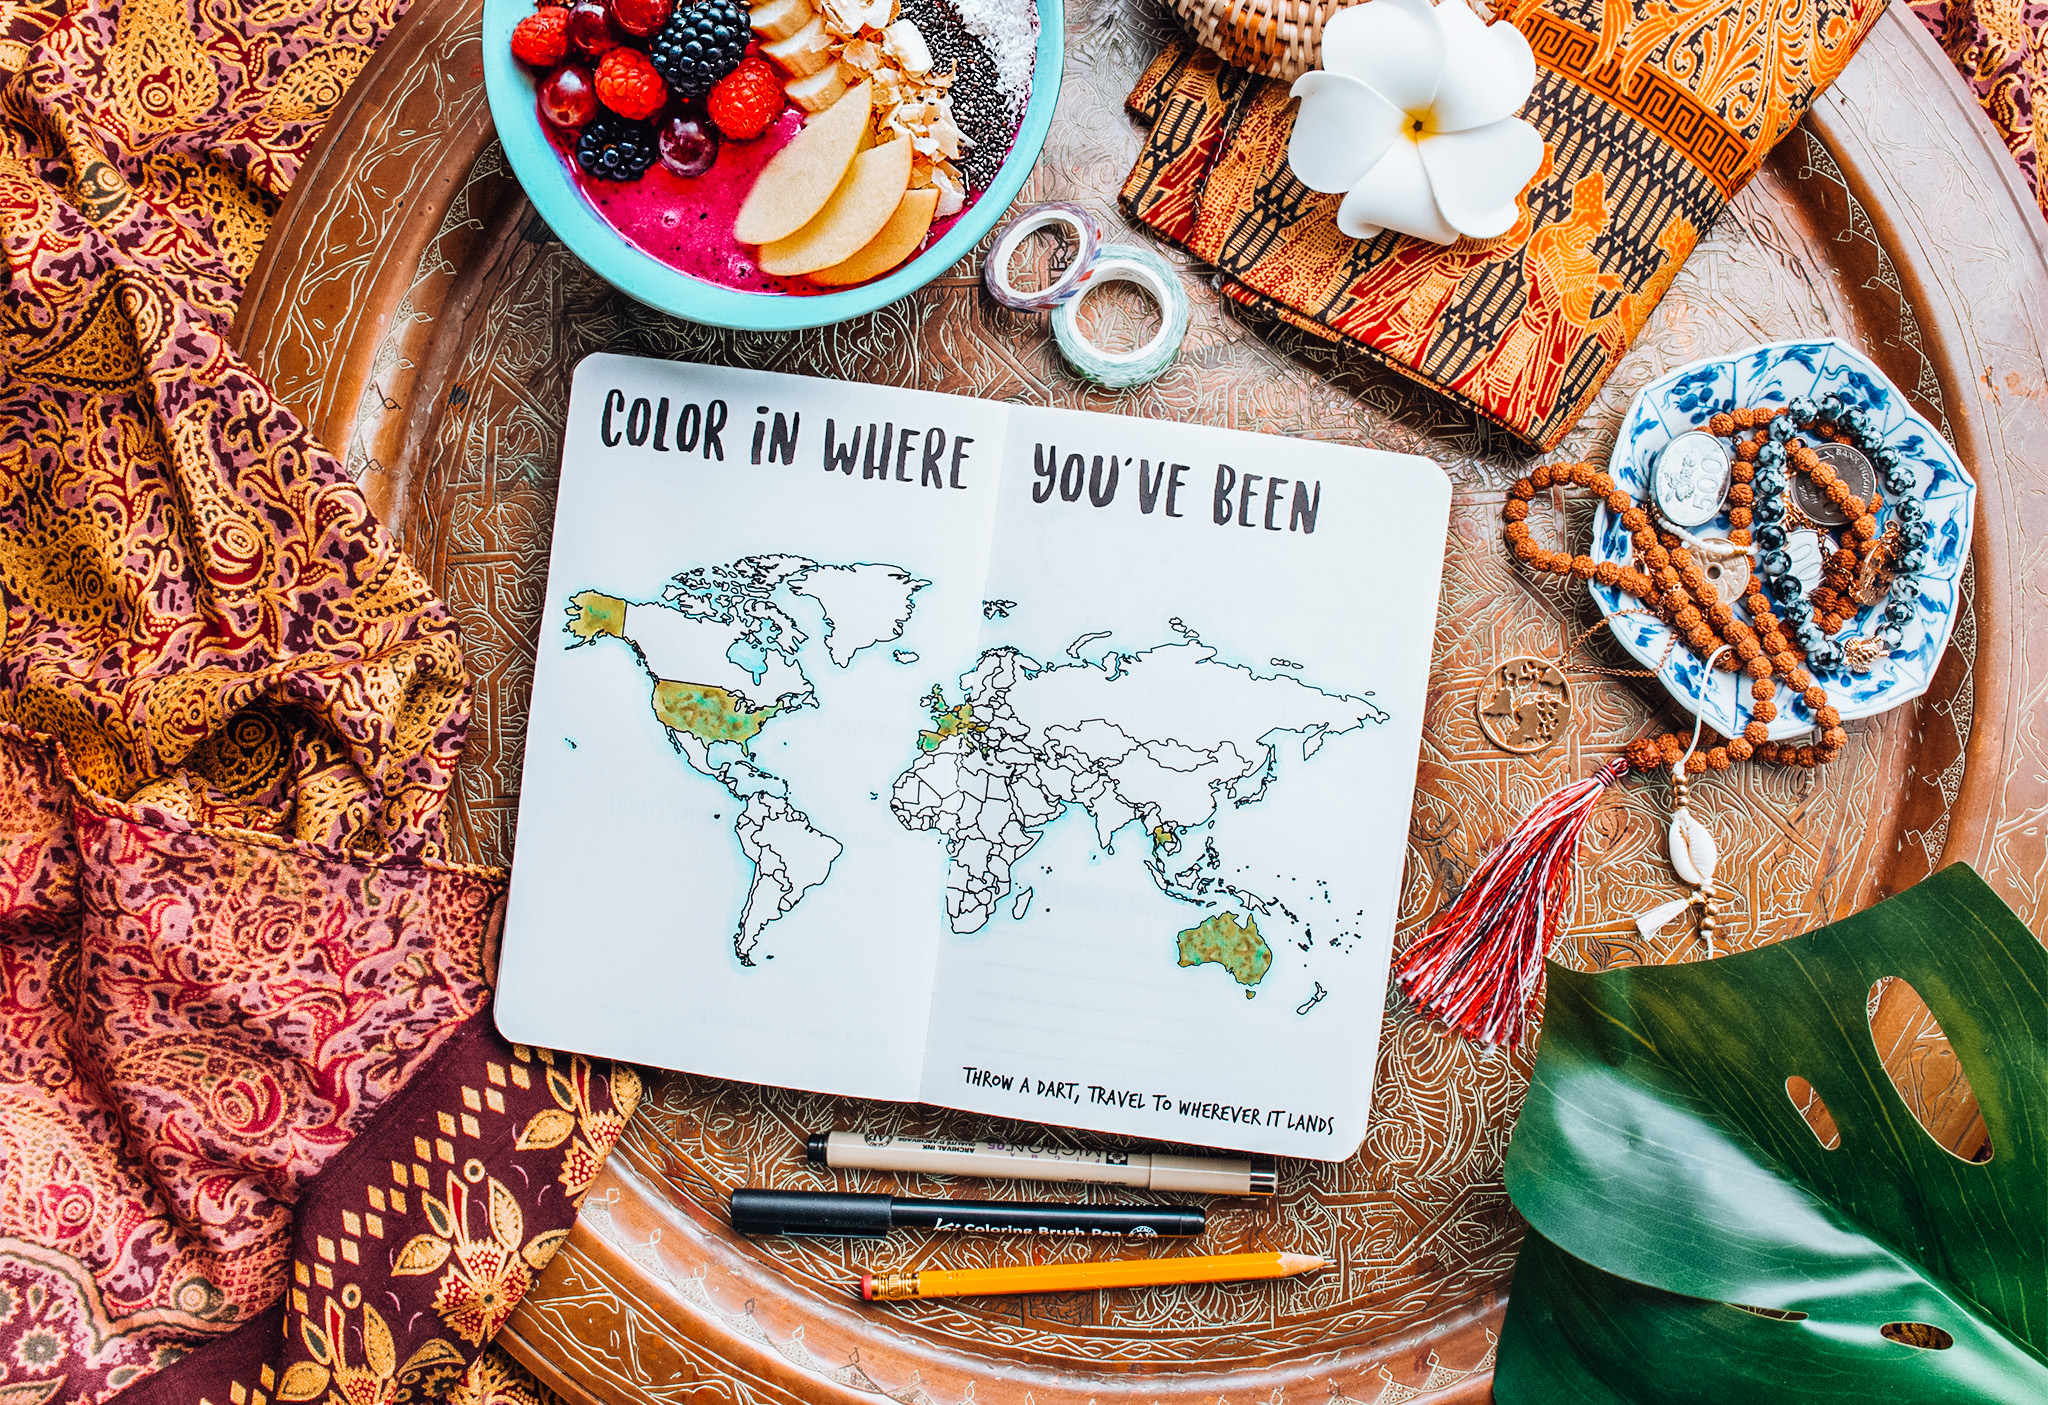 COLOR iN WHERE YOU'VE BEEN
THROW A DART, TRAVEL TO WHEREVER IT LANDS
MICRON 05
ARCHIVAL INK
QUALITÉ D'ARCHIVAGE
Coloring Brush Pen
500